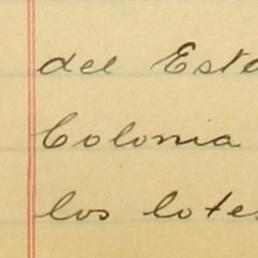 del Este
Colonia
los lotes